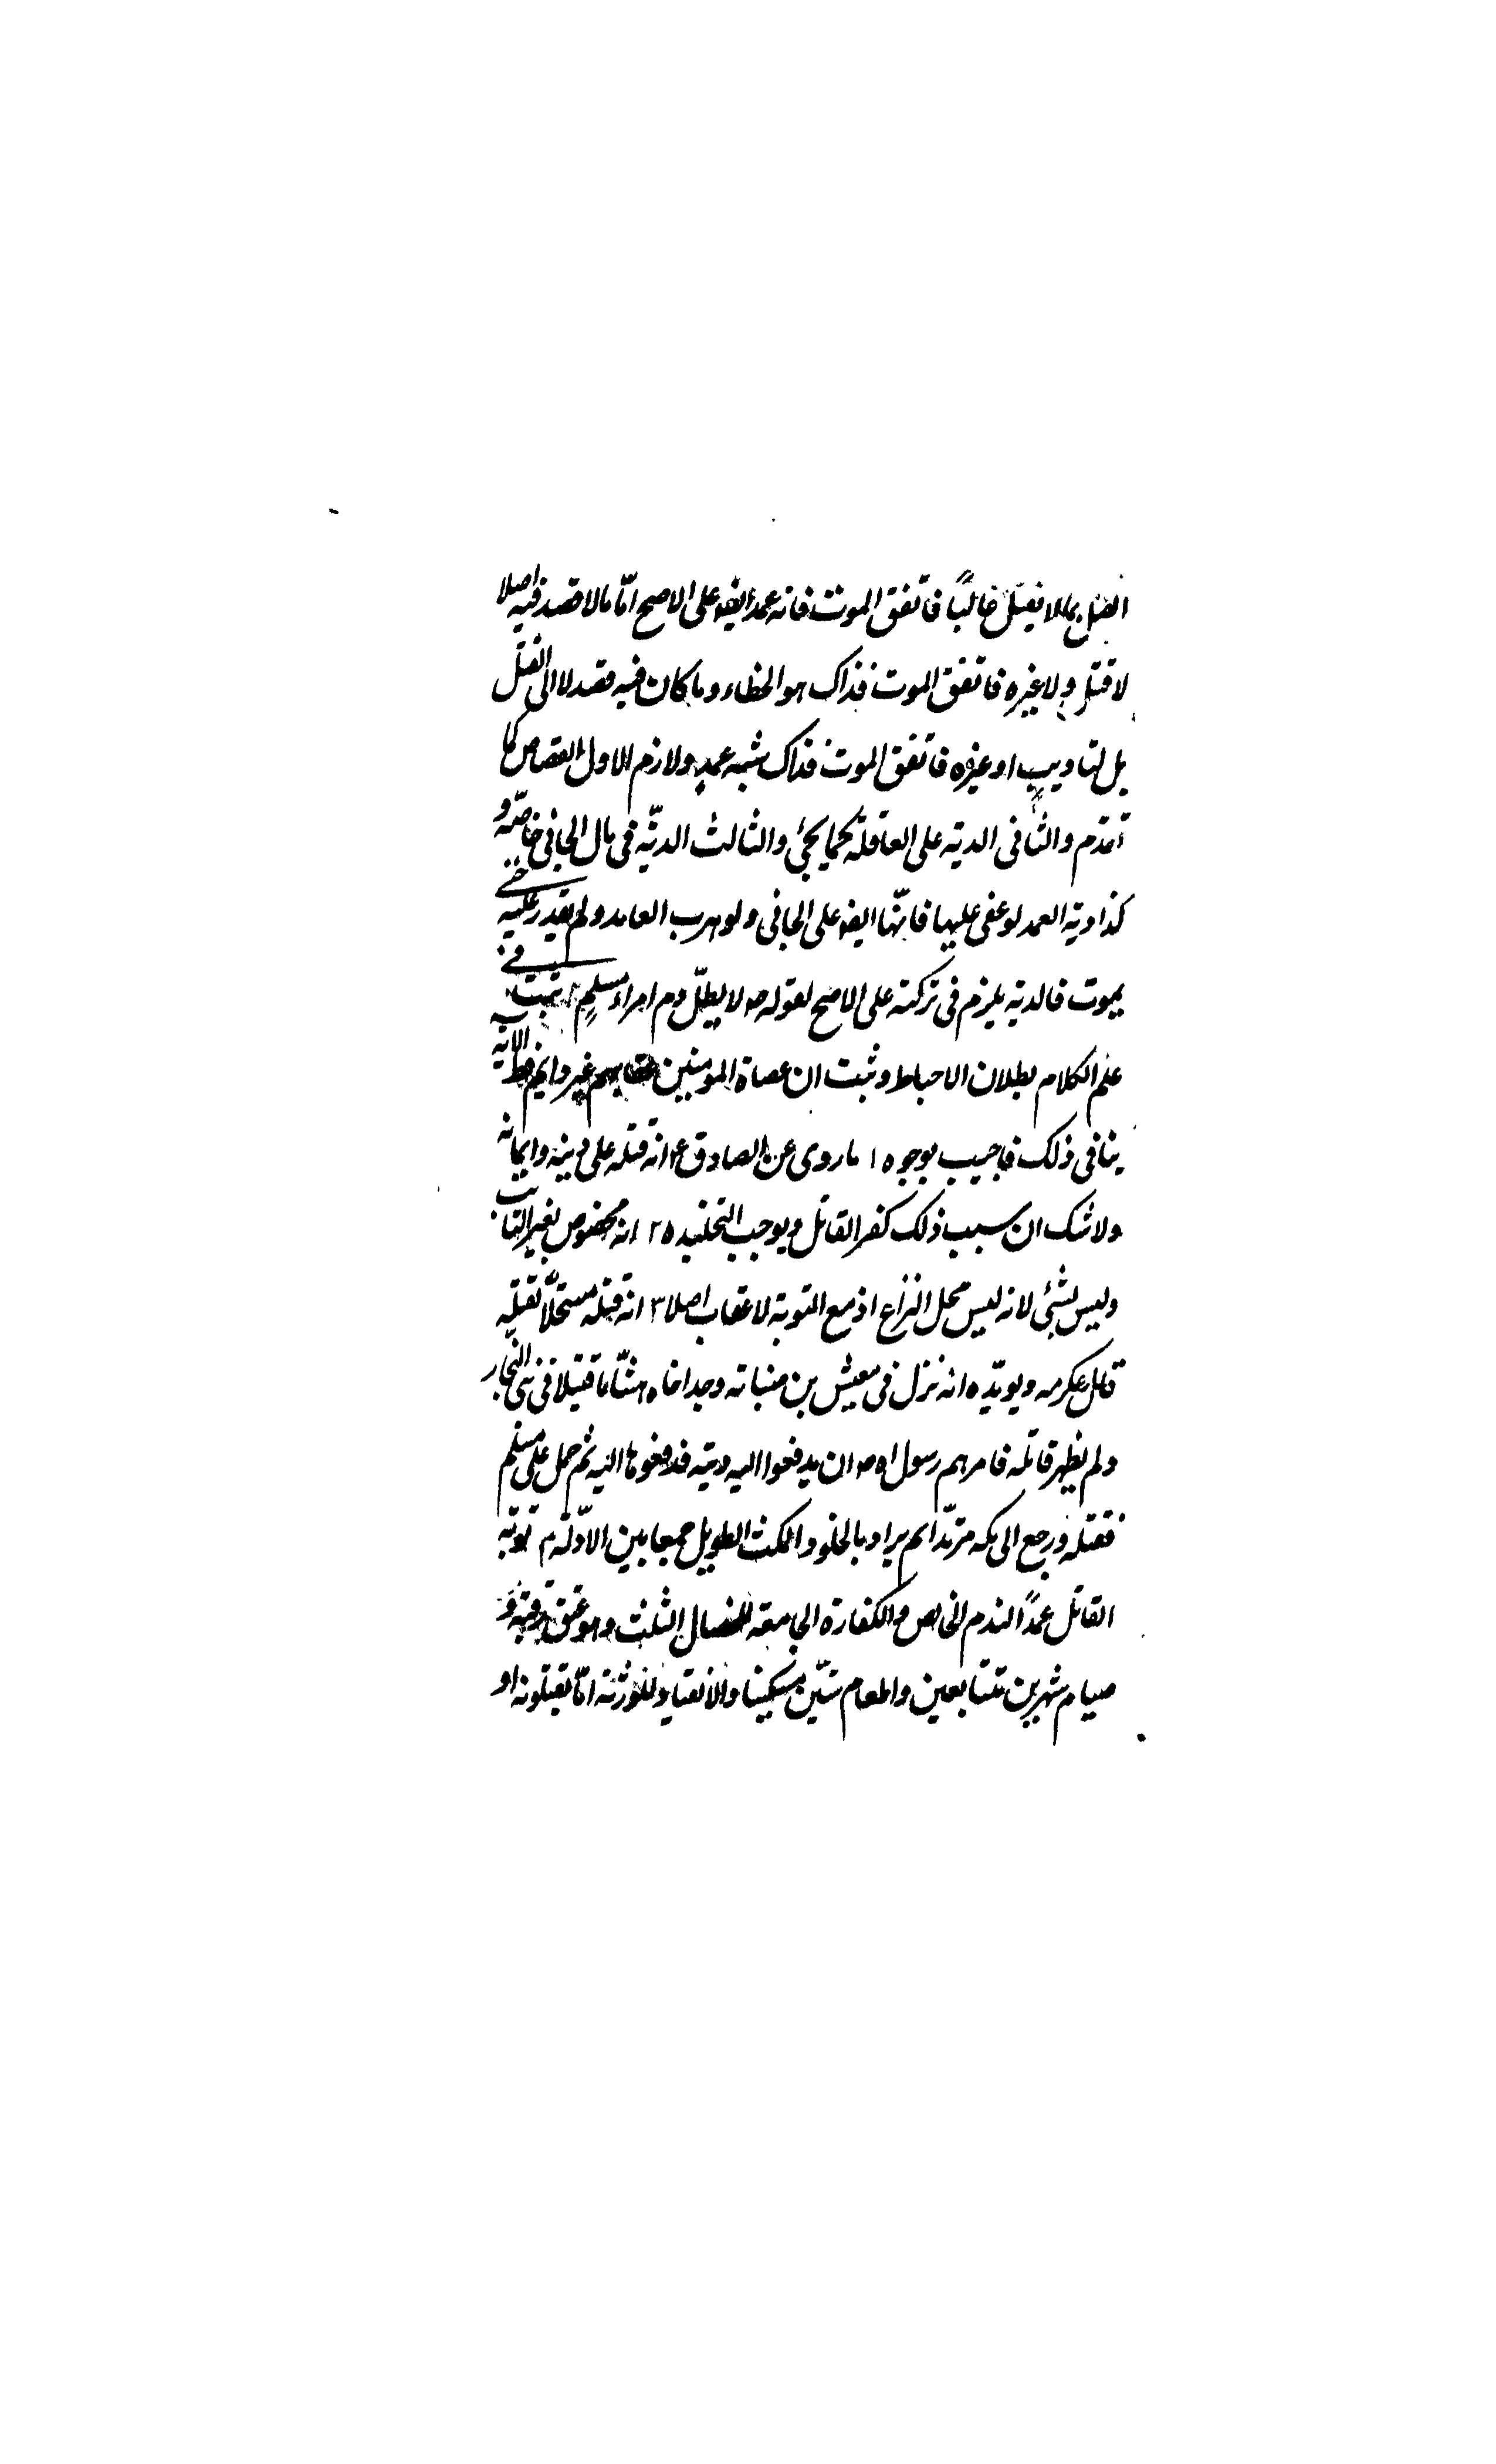 القتل بما لا يقتل غالبًا فاتفق الموت فانه عمد ايضا على الاصح امّا ما لا قصد فيه اصلا
لا قتل ولا غيره فاتفق الموت فذاك هو الخطاء وما كان فيه قصد لا الى القتل
بل لتاديب او غيره فاتفق الموت فذاك شبه عمد ولازم الاول القصاص كما
تقدم والثانى الدية على العاقلة كما يجئ والثالث الديّة فى مال الجانى خاصّة و
كذا دية العمد لو عفى عليها فانّها ايضا على الجانى ولو هرب العامد ولم يقدر عليه حتى
يموت فالدية يلزم فى تركته على الاصح لقوله ص لا يطلّ دم امراء مسلم ٢ ثبت فى
علم الكلام بطلان الاحباط وثبت ان عصاة المومنين عقابهم غير دايم فظ الآية
ينافى ذلك فاجيب بوجوه ١ ما روى عن الصادق ع انه قتله على دينه وايمانه
ولا شك ان سبب ذلك كفر القاتل ويوجب التخليد ٢ انه مخصوص بغير التائب
وليس بشئ لانه ليس محل النزاع اذ مع التوبة لا عقاب اصلا ٣ انه قتله مستحلّا لقتله
قاله عكرمه ويويّده انه نزل فى مقيش بن صبابه وجد اخاه هشّاما قتيلا فى بنى النجار
ولم يظهر قاتله فامرهم رسول الله ص ان يدفعوا اليه ديته فدفعوها اليه ثم حمل على مسلم
فقتله ورجع الى مكه مرتدّا ٤ لم يراد بالخلود المكث الطويل جمعا بين الادّلة م توبة
القاتل عمدًا الندم الخالص والكفارة الجامعة للخصال الثلث وهو عتق رقبة و
صيام شهرين متتابعين واطعام ستّين مسكينا والانقياد للورثة امّا يقتلونه او